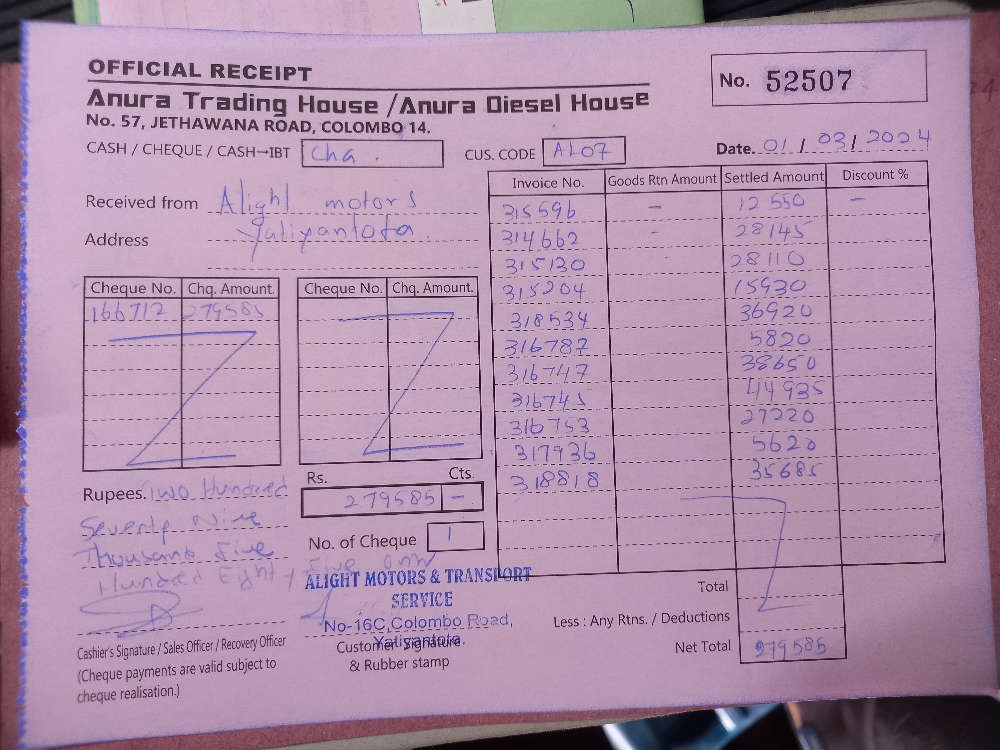 OFFICIAL RECEIPT
No. 52507
Anura Trading House /Anura Diesel House
No. 57, JETHAWANA ROAD, COLOMBO 14.
CASH / CHEQUE / CASH→IBT Cha . CUS. CODE AL07 Date. 01 / 03 / 2024
Received from Alight motors
Address Yatiyantota
Invoice No. Goods Rtn Amount Settled Amount Discount %
315596 – 12 550 –
314662 - 28145
315130 28110
315204 15930
318534 36920
316787 5820
316747 38650
316745 44935
316753 27220
317936 5620
318818 35685
Cheque No. Chq. Amount. Cheque No. Chq. Amount.
166712 279585
Rupees. Two Hundred
Seventy Nine
Thousand Five
Hundred Eighty Five only
Rs. Cts.
279585 –
No. of Cheque 1
ALIGHT MOTORS & TRANSPORT
SERVICE
No-16C,Colombo Road,
Yatiyantota.
Customer Signature
& Rubber stamp
Cashier's Signature / Sales Officer / Recovery Officer
(Cheque payments are valid subject to
cheque realisation.)
Total
Less : Any Rtns. / Deductions
Net Total 279585